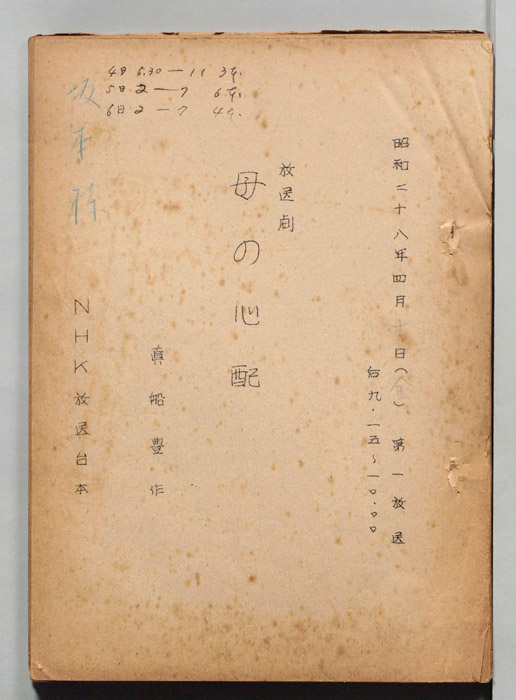 4日 5.30－11 3本.
5日 2－7 6本.
6日 2－7 4本.
昭和二十八年四月十日（金）第一放送
后九・一五～一〇・〇〇
放送劇
母の心配
真船豊作
NHK放送台本
坂本様